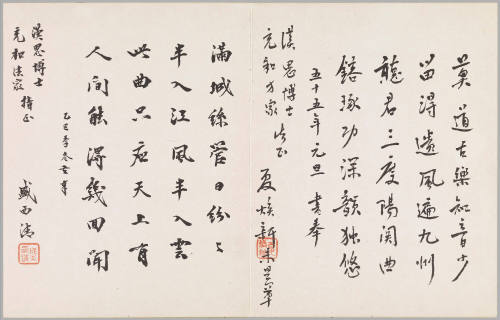 莫道古樂知音少
留得遺風遍九州
聽君三度陽関曲
琢功深韻独悠
五十五年元旦 書奉
漢思博士
充和方家 法正
夏煥新未是草
滿城絲管日紛〻
半入江風半入雲
此曲只應天上有
人間能得幾回聞
乙巳季冬
漢思博士
充和法家 指正
盛